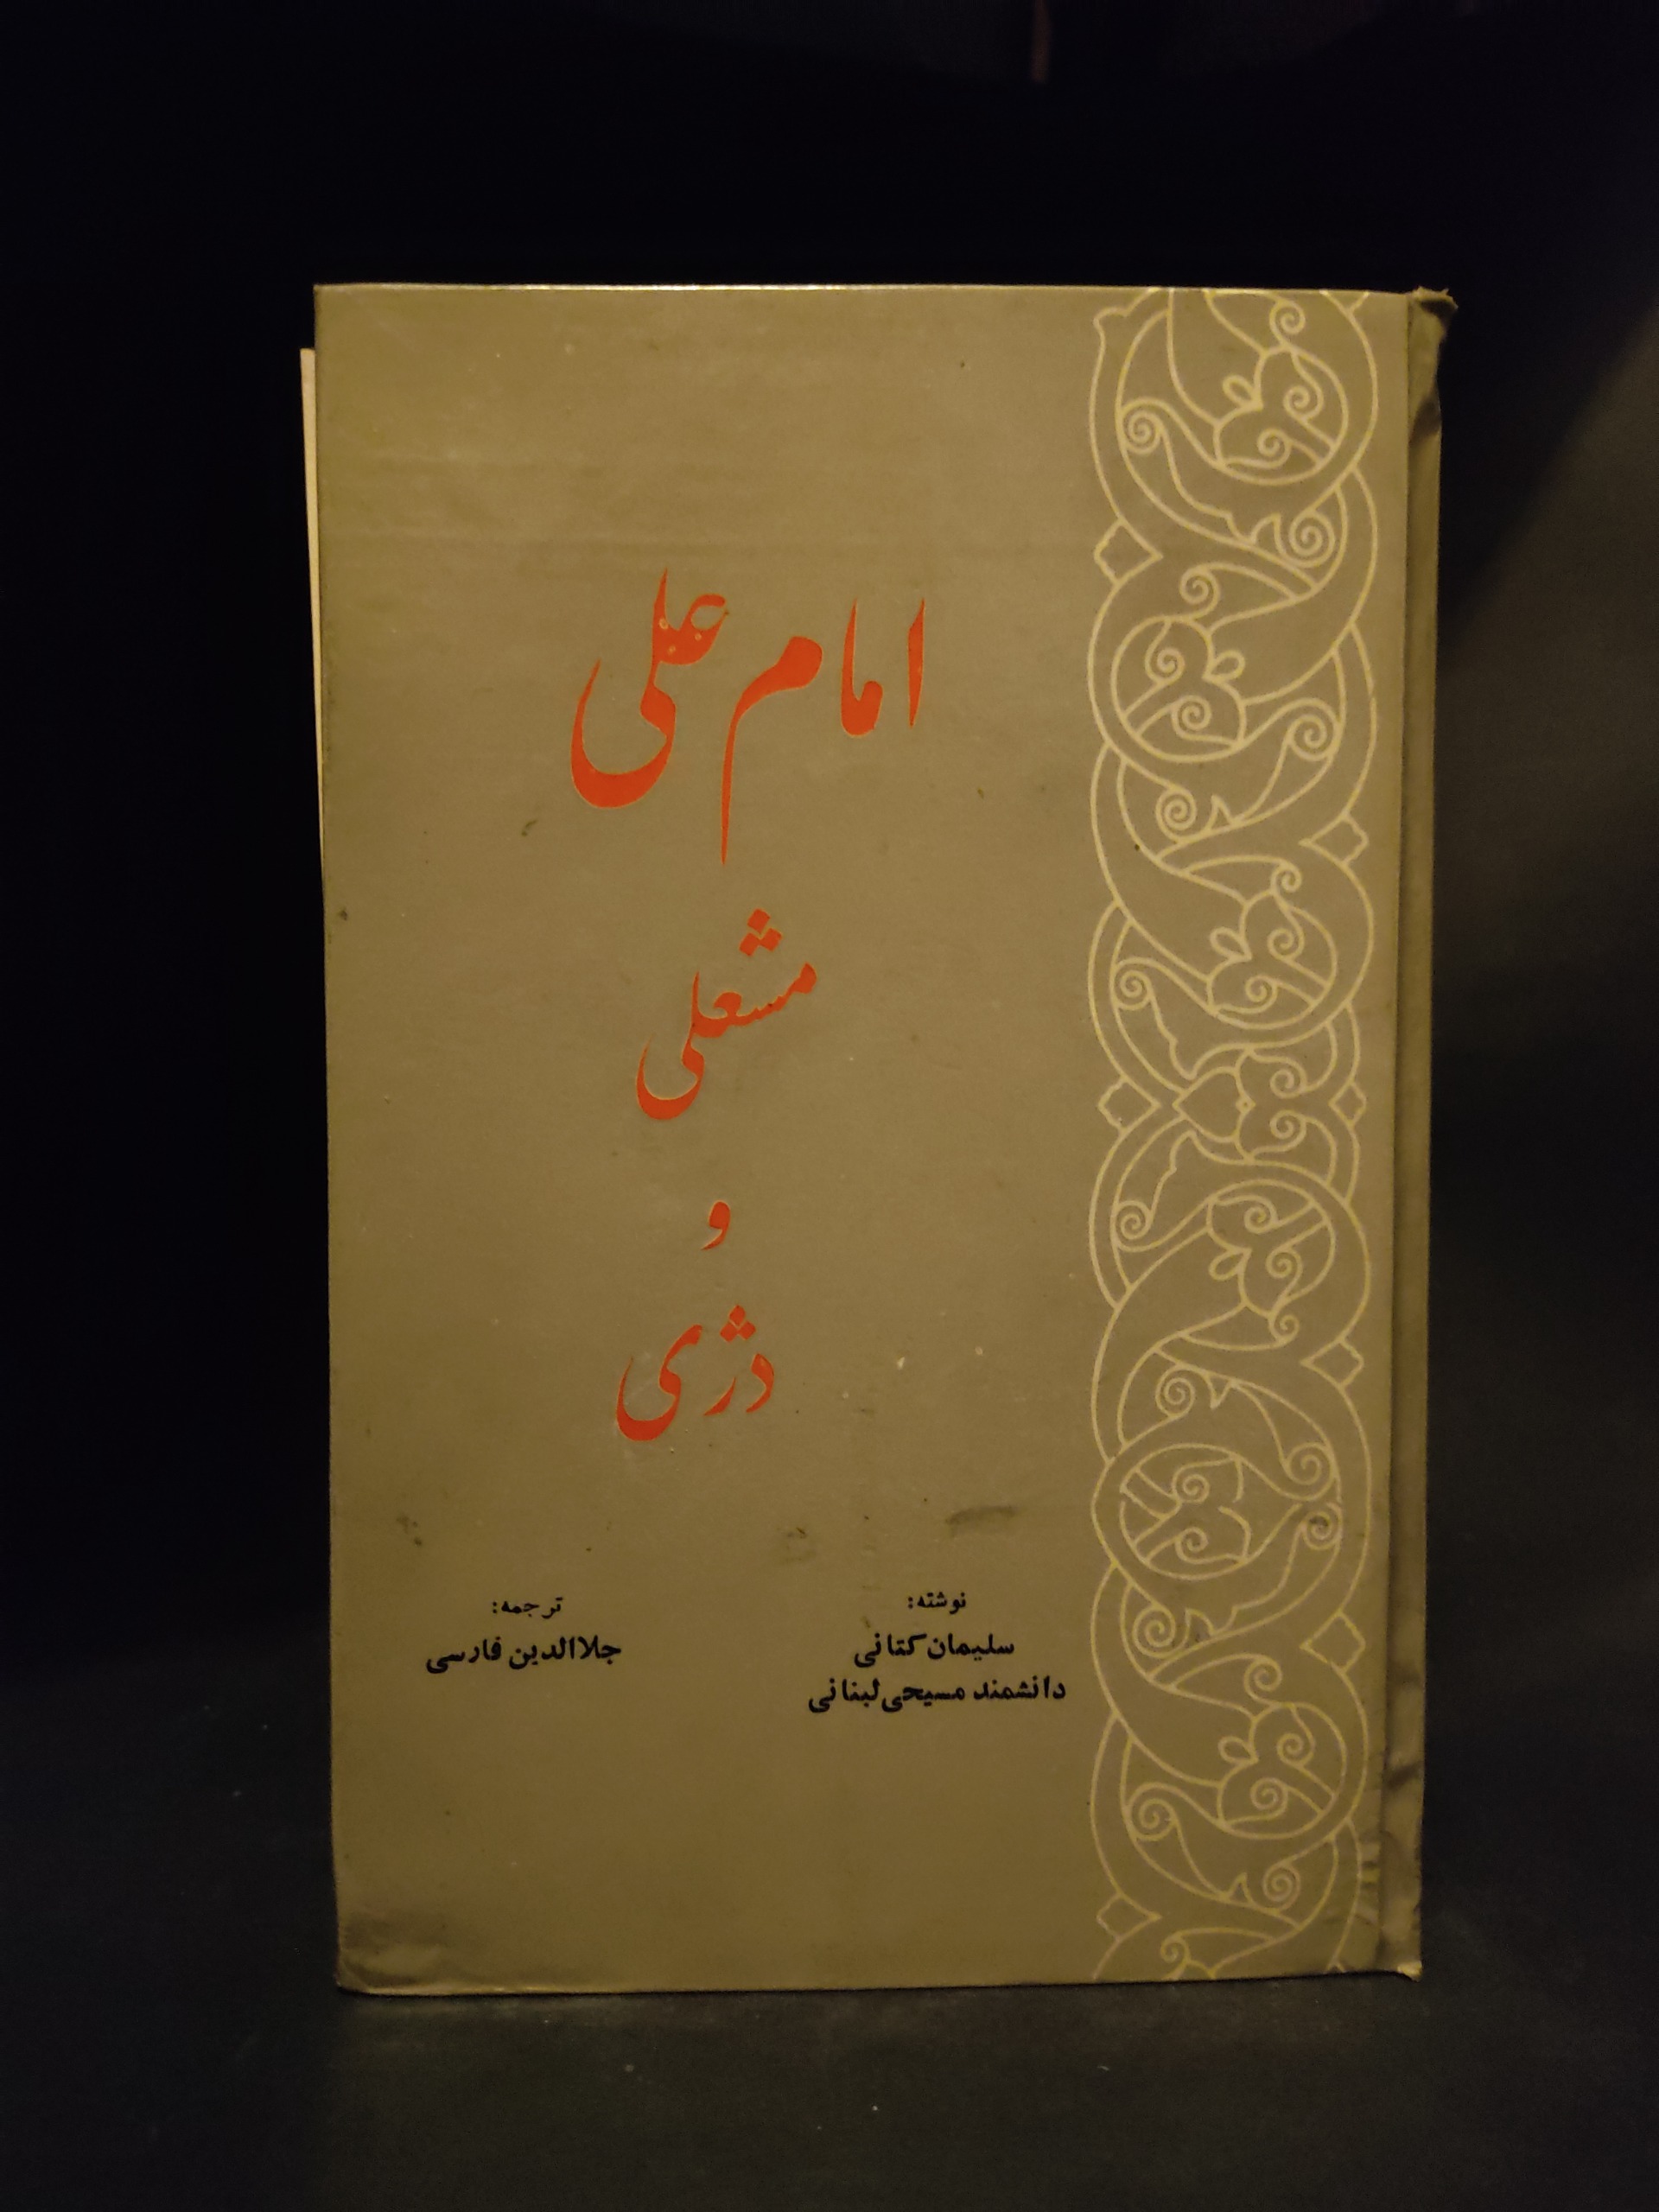 امام علی
مشعلی
و
دژی
نوشته:
سلیمان کتانی
دانشمند مسیحی لبنانی
ترجمه:
جلاالدین فارسی